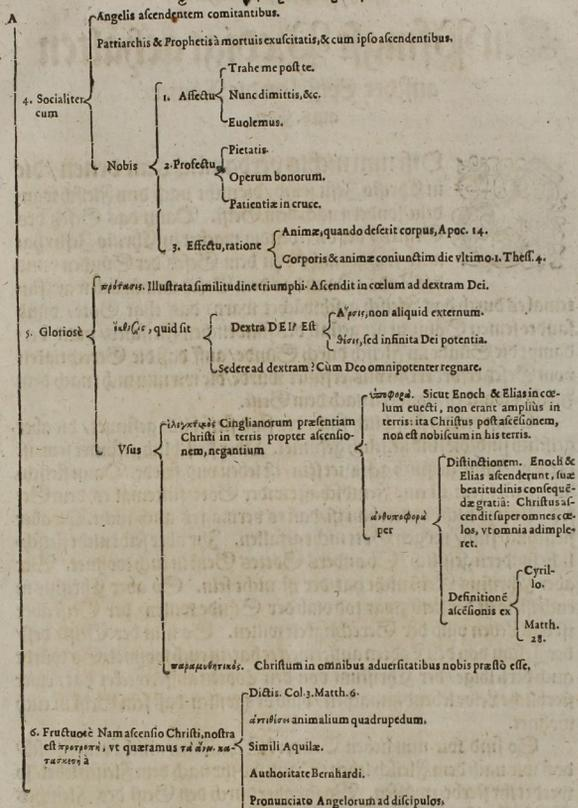 A
Angelis ascendentem comitantibus.
Patriarchis & Prophetis à mortuis exuscitatis, & cum ipso ascendentibus.
4. Socialiter
cum
Nobis
1. Affectu
Trahe me post te.
Nunc dimittis, &c.
Euolemus.
2. Profectu
Pietatis.
Operum bonorum.
Patientiæ in cruce.
3. Effectu, ratione
Animæ, quando deserit corpus, Apoc. 14.
Corporis & animæ coniunctim die vltimo. 1. Thess. 4.
5. Gloriosè
πρότασις. Illustrata similitudine triumphi. Ascendit in cœlum ad dextram Dei.
quid sit
Dextra DEI? Est
Ἄρσις, non aliquid externum.
θέσις, sed infinita Dei potentia.
Sedere ad dextram? Cùm Deo omnipotenter regnare.
Vsus
ἐλεγκτικὸς Cinglianorum præsentiam
Christi in terris propter ascensio-
nem, negantium
ὑποφορά. Sicut Enoch & Elias in cœ-
lum euecti, non erant ampliùs in
terris: ita Christus post ascēsionem,
non est nobiscum in his terris.
ἀνθυποφορὰ
per
Distinctionem. Enoch &
Elias ascenderunt, suæ
beatitudinis consequē-
dæ gratiâ: Christus as-
cendit super omnes cœ-
los, vt omnia adimple-
ret.
Definitionē
ascēsionis ex
Cyril-
lo.
Matth.
28.
παραμυθητικός. Christum in omnibus aduersitatibus nobis præstò esse,
6. Fructuosè Nam ascensio Christi, nostra
est προτροπὴ, vt quæramus τὰ ἄνω. κα-
τασκευὴ à
Dictis. Col. 3. Matth. 6.
ἀντιθέσει animalium quadrupedum.
Simili Aquilæ.
Authoritate Bernhardi.
Pronunciato Angelorum ad discipulos,